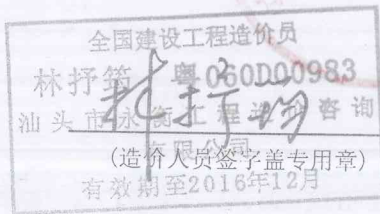 全国建设工程造价员
林抒筠 粤060D00983
汕头市永衡工程造价咨询
有限公司
林抒筠
(造价人员签字盖专用章)
有效期至2016年12月